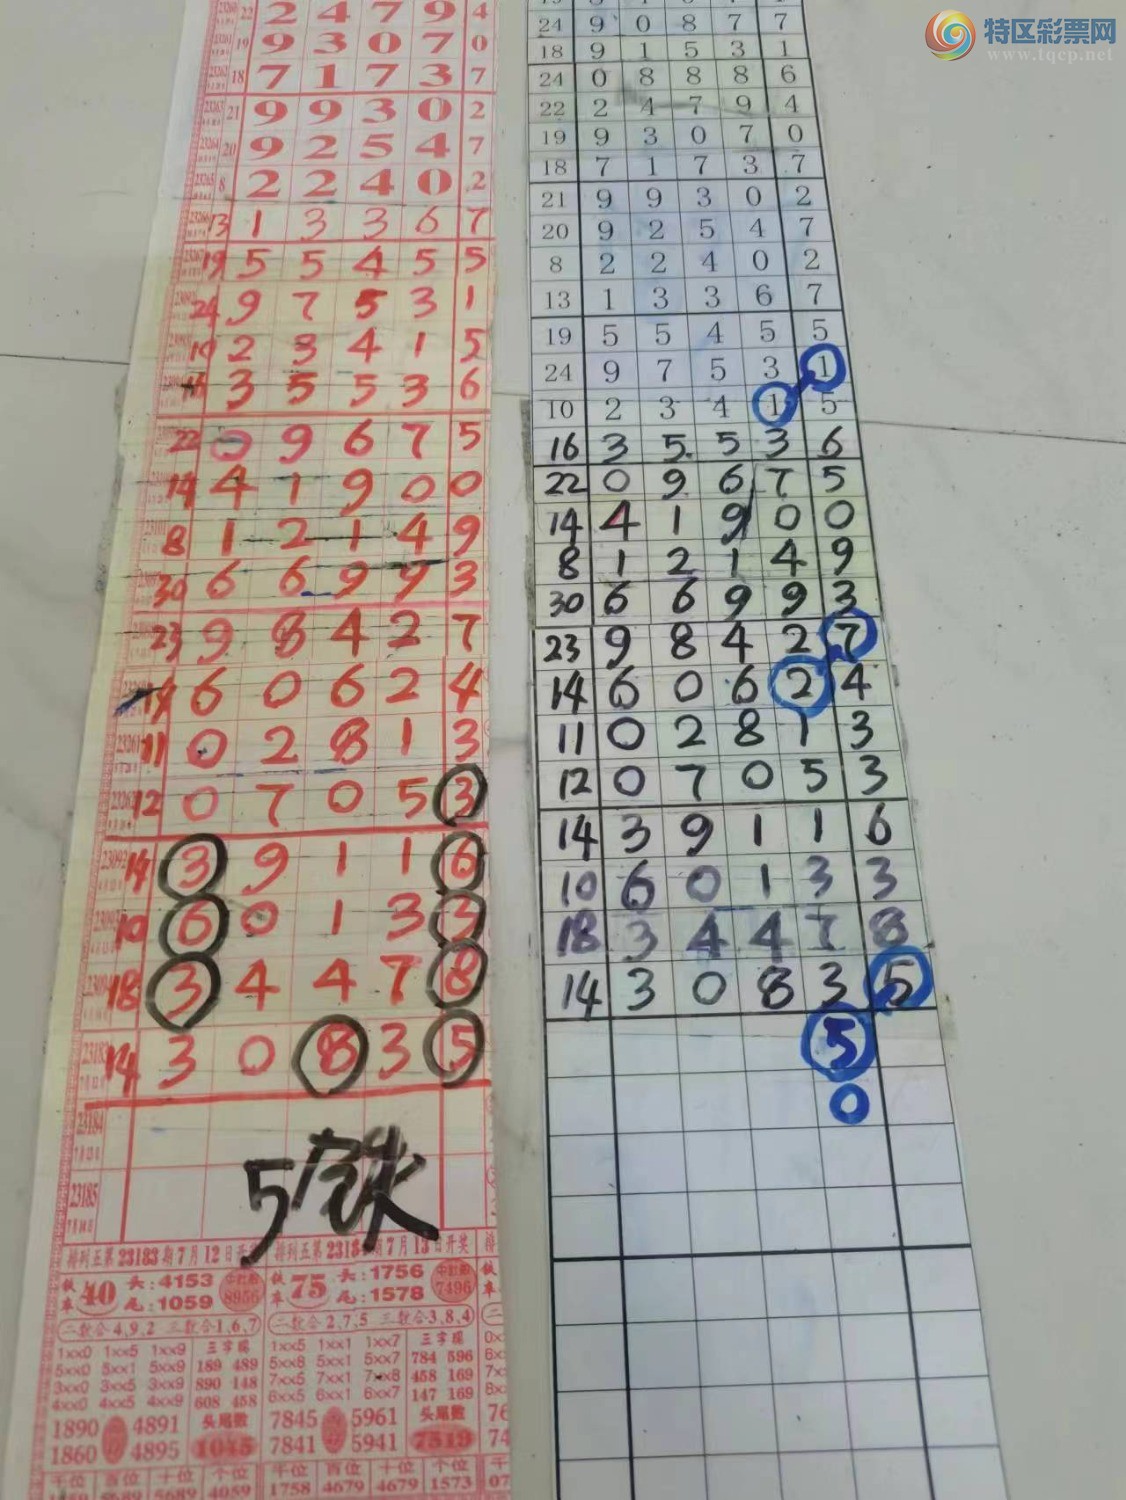 特区彩票网
www.tqcp.net
22 2 4 7 9 4
19 9 3 0 7 0
18 7 1 7 3 7
21 9 9 3 0 2
20 9 2 5 4 7
8 2 2 4 0 2
13 1 3 3 6 7
19 5 5 4 5 5
24 9 7 5 3 1
10 2 3 4 1 5
16 3 5 5 3 6
22 0 9 6 7 5
14 4 1 9 0 0
8 1 2 1 4 9
30 6 6 9 9 3
23 9 8 4 2 7
14 6 0 6 2 4
11 0 2 8 1 3
12 0 7 0 5 3
14 3 9 1 1 6
10 6 0 1 3 3
18 3 4 4 7 8
14 3 0 8 3 5
23184
23185
5
排列五第23183期7月12日
排列五第2318 期7月13日开奖
铁车 40 头:4153 尾:1059 8956
铁车 75 头:1756 尾:1578 7496
二数合4,9,2 三数合1,6,7
二数合2,7,5 三数合3,8,4
1xx0 1xx5 1xx9 三字现
5xx0 5xx1 5xx9 189 489
3xx0 3xx5 3xx9 890 148
4xx0 4xx5 4xx9 608 458
1xx5 1xx1 1xx7 三字现
5xx8 5xx1 5xx7 784 596
7xx5 7xx1 7xx8 458 169
6xx5 6xx1 6xx7 147 169
1890 4891 头尾数
1860 4895 1045
7845 5961 头尾数
7841 5941 7519
千位 百位 十位 个位
5689 5689 4059
千位 百位 十位 个位
1758 4679 4679 1573
24 9 0 8 7 7
18 9 1 5 3 1
24 0 8 8 8 6
22 2 4 7 9 4
19 9 3 0 7 0
18 7 1 7 3 7
21 9 9 3 0 2
20 9 2 5 4 7
8 2 2 4 0 2
13 1 3 3 6 7
19 5 5 4 5 5
24 9 7 5 3 1
10 2 3 4 1 5
16 3 5 5 3 6
22 0 9 6 7 5
14 4 1 9 0 0
8 1 2 1 4 9
30 6 6 9 9 3
23 9 8 4 2 7
14 6 0 6 2 4
11 0 2 8 1 3
12 0 7 0 5 3
14 3 9 1 1 6
10 6 0 1 3 3
18 3 4 4 7 8
14 3 0 8 3 5
5
0